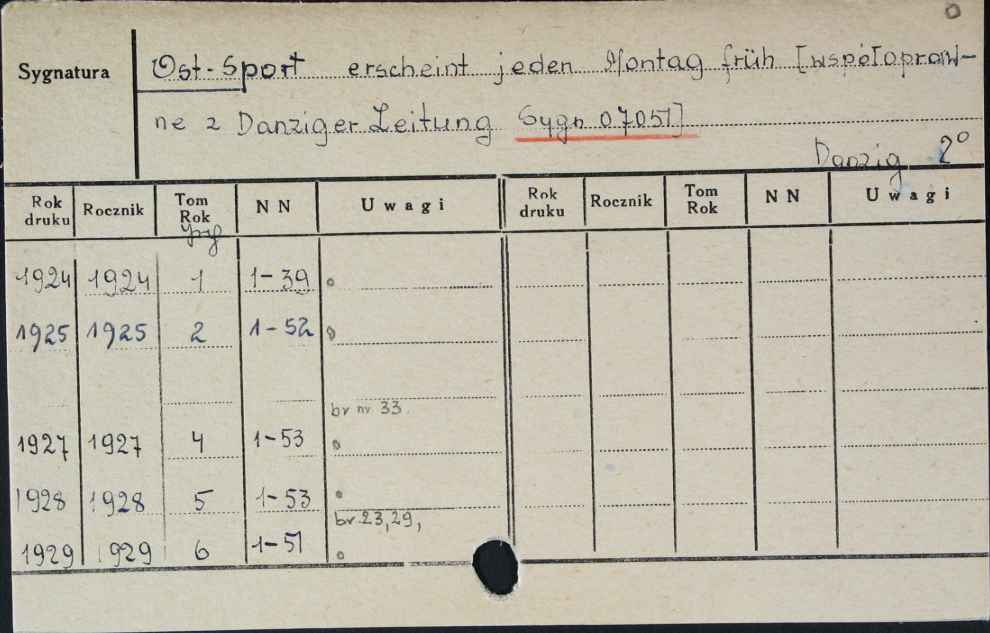 Sygnatura
Ost-Sport erscheint jeden Montag früh [współopraw-
ne z Danziger Zeitung Sygn 07051]
Danzig 2°
Rok druku Rocznik Tom Rok NN Uwagi Rok druku Rocznik Tom Rok NN Uwagi
1924 1924 1 1-39
1925 1925 2 1-52
br nr 33
1927 1927 4 1-53
1928 1928 5 1-53
br 23, 29,
1929 1929 6 1-51